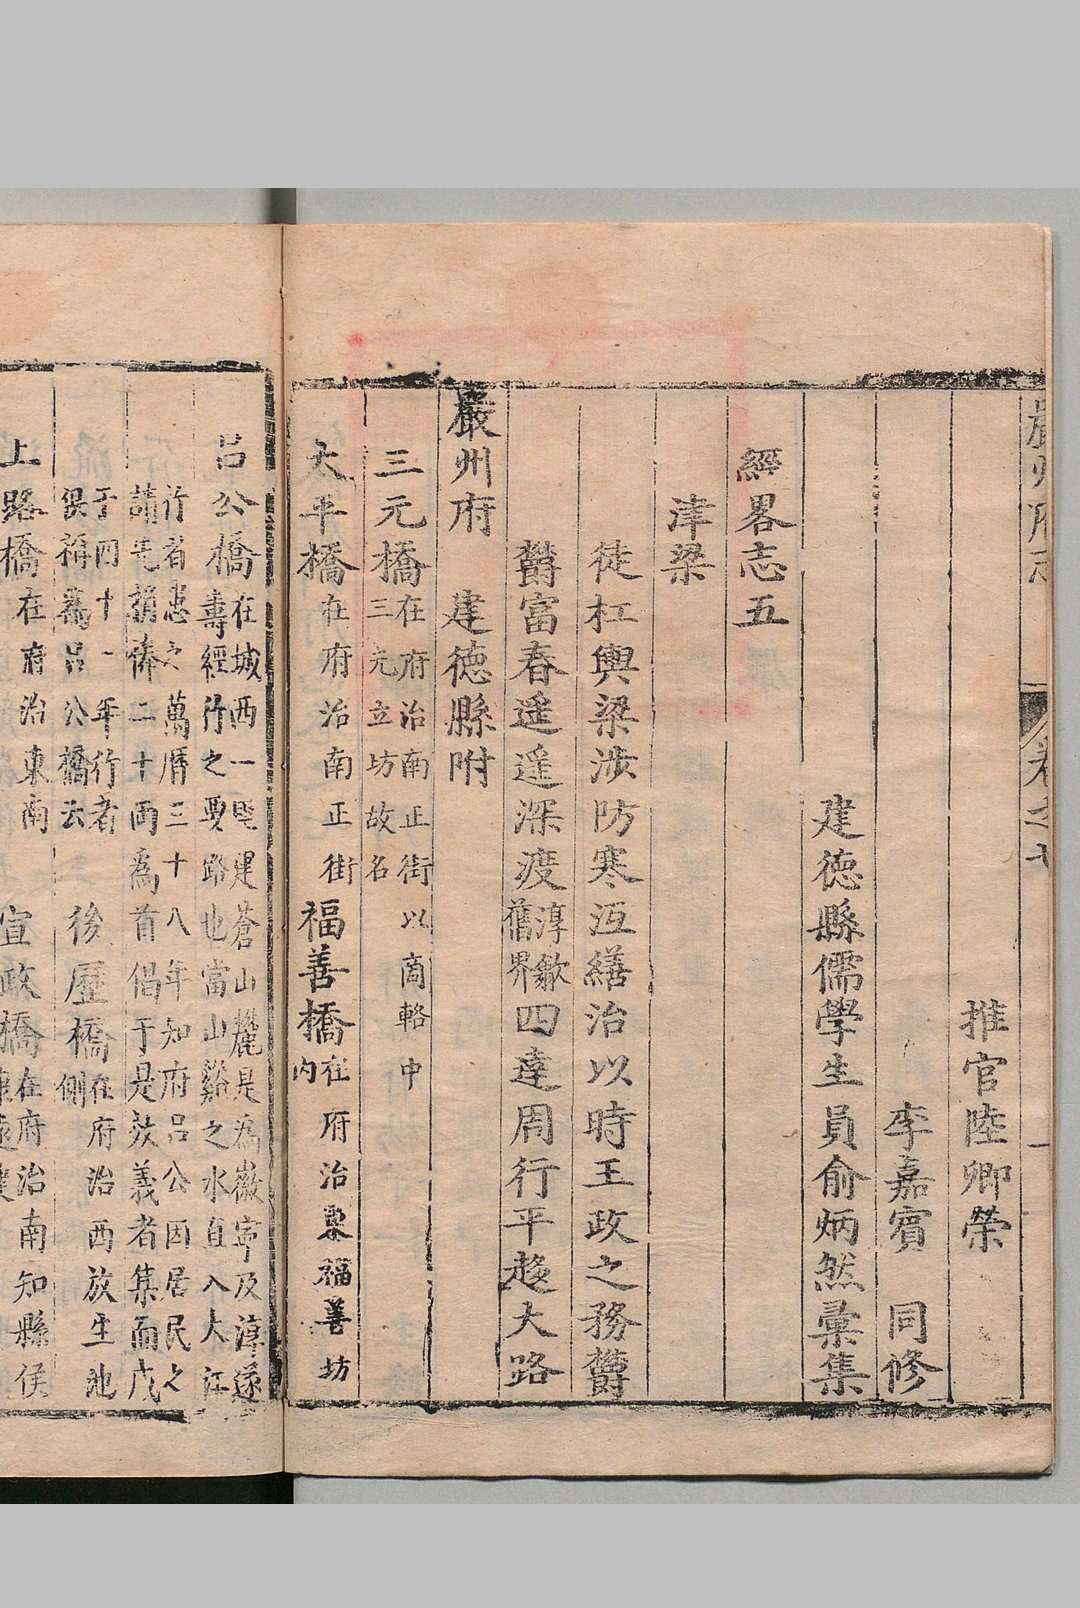 嚴州府志 卷之七 一
推官陸卿榮
李嘉賓 同修
建德縣儒學生員俞炳然彙集
經畧志五
津梁
徒杠輿梁涉防寒沍繕治以時王政之務欝
欝富春遥遥深渡淳歙舊界四達周行平趍大路
嚴州府 建德縣附
三元橋在府治南正街以商輅中三元立坊故名
太平橋在府治南正街 福善橋在府治東福善坊内
呂公橋在城西一里建蒼山麓是為徽寧及淳遂壽經行之要路也當山谿之水直入大江
行者患之萬曆三十八年知府呂公因居民之請先捐俸二十兩為首倡于是效義者集而戊
于四十一年行者俱稱為呂公橋云 後歷橋在府治西放生池側
上路橋在府治東南 宣政橋在府治南知縣侯